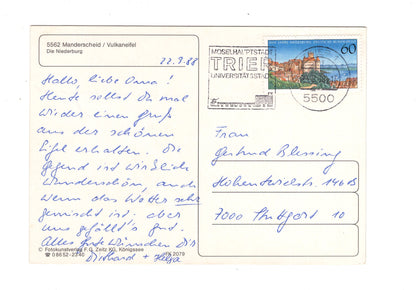 5562 Manderscheid / Vulkaneifel
Die Niederburg
22.9.88
Hallo, liebe Oma!
Heute sollst Du mal
wieder einen Gruß
aus der schönen
Eifel erhalten. Die
Gegend ist wirklich
wunderschön, auch
wenn das Wetter sehr
gemischt ist. aber
uns gefällt's gut.
Alles Gute wünschen Dir
+ Helga
© Fotokunstverlag F.G. Zeitz KG, Königssee
☎ 08652-2240
2079
MOSELHAUPTSTADT
TRIER
UNIVERSITÄTSSTADT
5500
60
Frau
Gertrud Blessing
146B
7000 Stuttgart 10